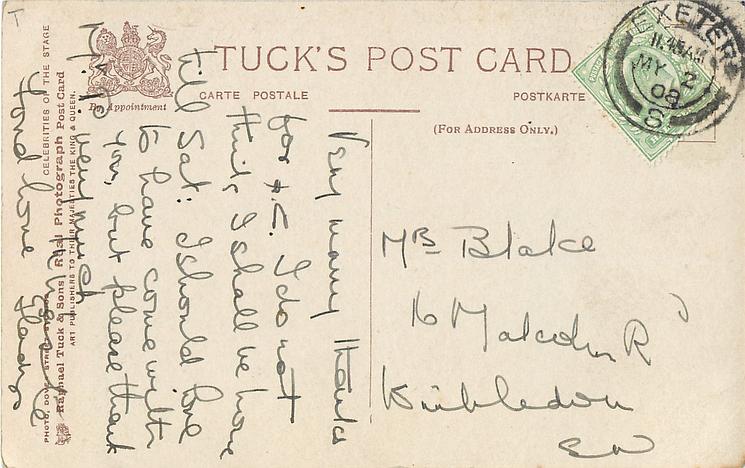 TUCK'S POST CARD
CARTE POSTALE
POSTKARTE
By Appointment
(FOR ADDRESS ONLY.)
CELEBRITIES OF THE STAGE
Raphael Tuck & Sons' Real Photograph Post Card
ART PUBLISHERS TO THEIR MAJESTIES THE KING & QUEEN.
PHOTO,
EXETER
11.45AM
MY 2
08
8
Very many thanks
for p.c. I do not
think I shall be home
till Sat: I should love
to have come with
you, but please thank
very much
Fond love Gladys
Mrs Blake
16 Malcolm Rd
Wimbledon
SW